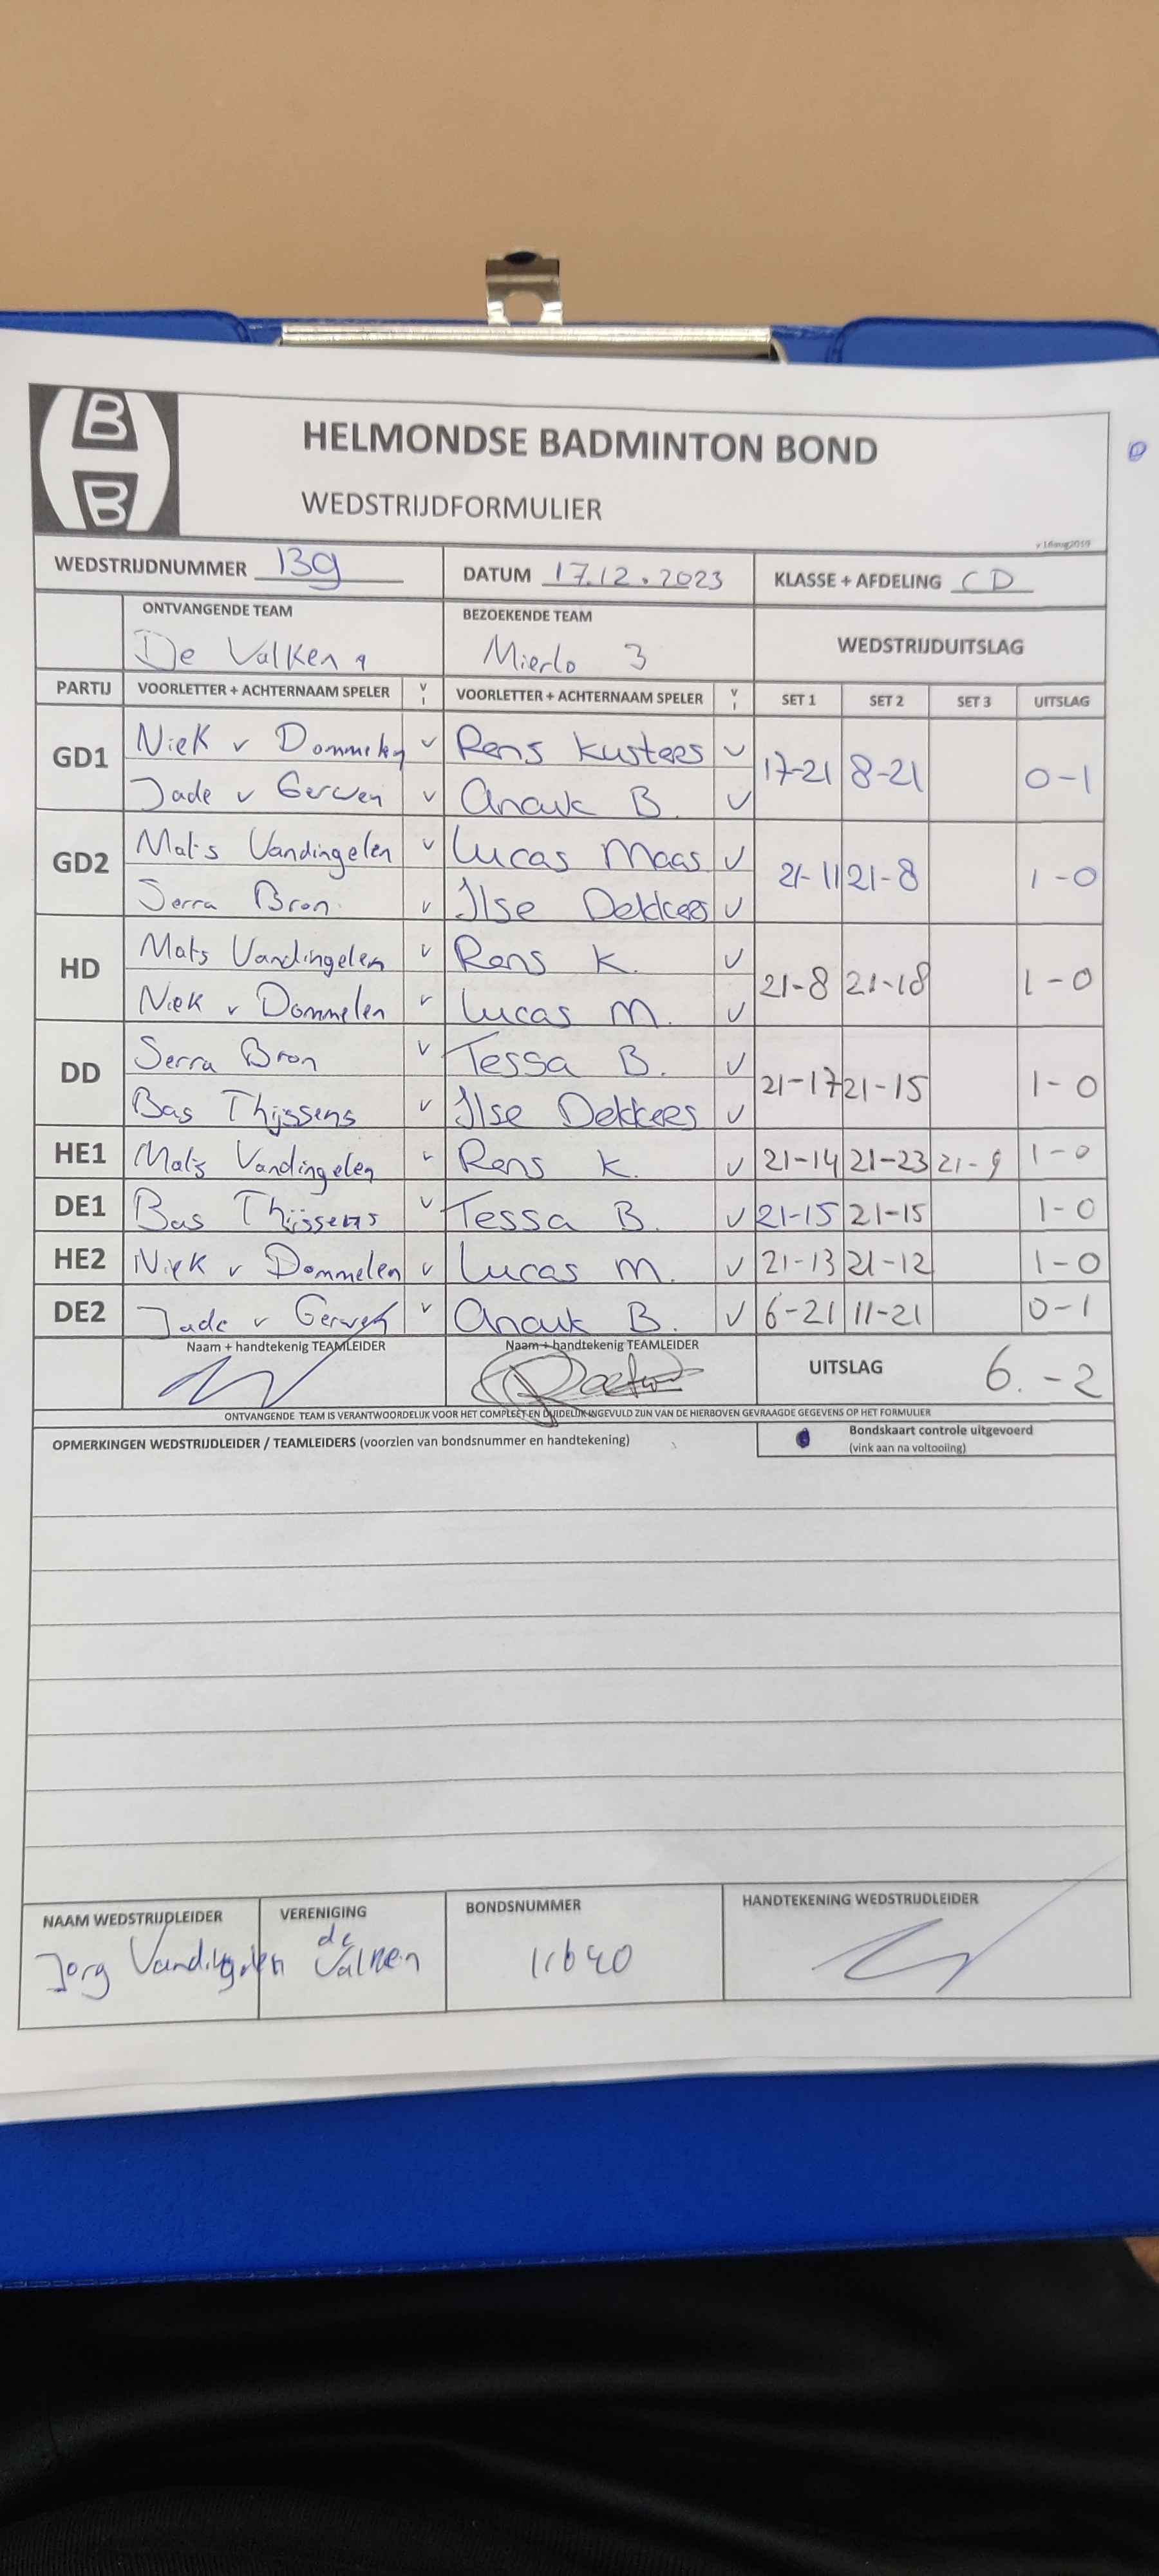 HELMONDSE BADMINTON BOND
WEDSTRIJDFORMULIER
v 16aug2019
WEDSTRIJDNUMMER 139 DATUM 17.12.2023 KLASSE + AFDELING CD
ONTVANGENDE TEAM BEZOEKENDE TEAM WEDSTRIJDUITSLAG
De Valken 9 Mierlo 3
PARTIJ VOORLETTER + ACHTERNAAM SPELER V I VOORLETTER + ACHTERNAAM SPELER V I SET 1 SET 2 SET 3 UITSLAG
GD1 Niek v Dommelen v Rens Kusters v 17-21 8-21 0-1
Jade v Gerwen v Anouk B. v
GD2 Mats Vandingelen v Lucas Maas v 21-11 21-8 1-0
Serra Bron v Ilse Dekkers v
HD Mats Vandingelen v Rens K. v 21-8 21-18 1-0
Niek v Dommelen v Lucas M. v
DD Serra Bron v Tessa B. v 21-17 21-15 1-0
Bas Thijssens v Ilse Dekkers v
HE1 Mats Vandingelen v Rens K. v 21-14 21-23 21-9 1-0
DE1 Bas Thijssens v Tessa B. v 21-15 21-15 1-0
HE2 Niek v Dommelen v Lucas M. v 21-13 21-12 1-0
DE2 Jade v Gerwen v Anouk B. v 6-21 11-21 0-1
Naam + handtekenig TEAMLEIDER Naam + handtekenig TEAMLEIDER UITSLAG 6.-2
ONTVANGENDE TEAM IS VERANTWOORDELIJK VOOR HET COMPLEET EN DUIDELIJK INGEVULD ZIJN VAN DE HIERBOVEN GEVRAAGDE GEGEVENS OP HET FORMULIER
OPMERKINGEN WEDSTRIJDLEIDER / TEAMLEIDERS (voorzien van bondsnummer en handtekening) Bondskaart controle uitgevoerd
(vink aan na voltooiing)
NAAM WEDSTRIJDLEIDER VERENIGING BONDSNUMMER HANDTEKENING WEDSTRIJDLEIDER
Jorg Vandingelen de Valken 11640